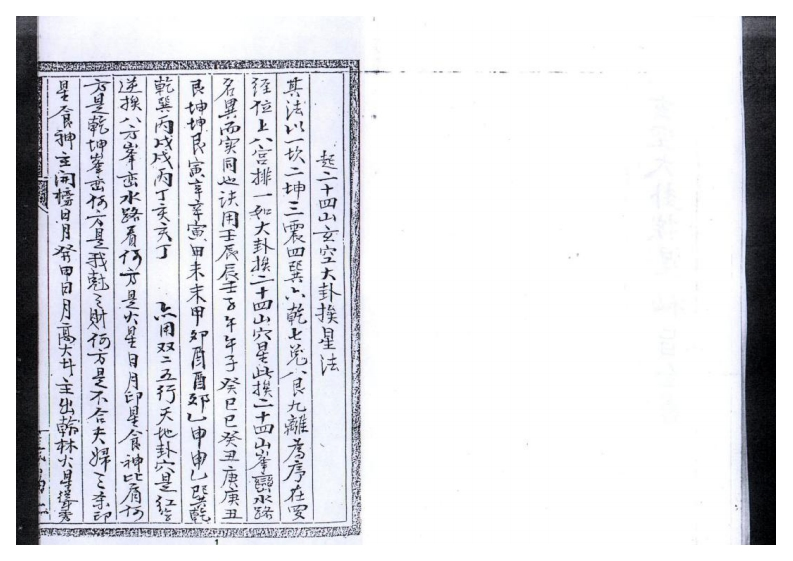 起二十四山玄空大卦挨星法
其法以一坎二坤三震四巽六乾七兌八艮九離為序在四
經位上八宮排一如大卦挨二十四山穴星此挨二十四山峯巒水路
名異而实同也法用壬辰辰壬子午午子癸巳巳癸丑庚庚丑
艮坤坤艮寅辛辛寅甲未未甲卯酉酉卯乙申申乙巽乾
乾巽丙戌戌丙丁亥亥丁 亦用双二五行天地卦穴是紅字
逆挨八方峯巒水路看何方是火星日月印星食神比肩何
方是乾坤峯巒何方是我尅之財何方是不合夫婦之杀印
星食神主開榜日月癸甲日月高大斗主出翰林火星
1